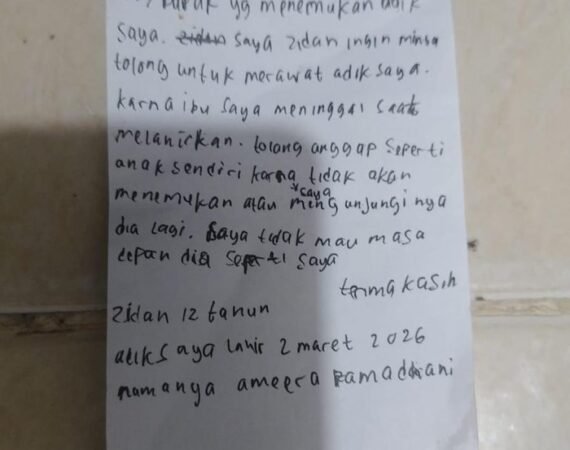 yg menemukan adik
saya. zidan saya zidan ingin minta
tolong untuk merawat adik saya.
karna ibu saya meninggal saat
melahirkan. tolong anggap seperti
anak sendiri karna tidak akan
menemukan atau saya mengunjungi nya
dia lagi. saya tidak mau masa
depan dia seperti saya
terima kasih
zidan 12 tahun
adik saya lahir 2 maret 2026
namanya ameera ramadhani